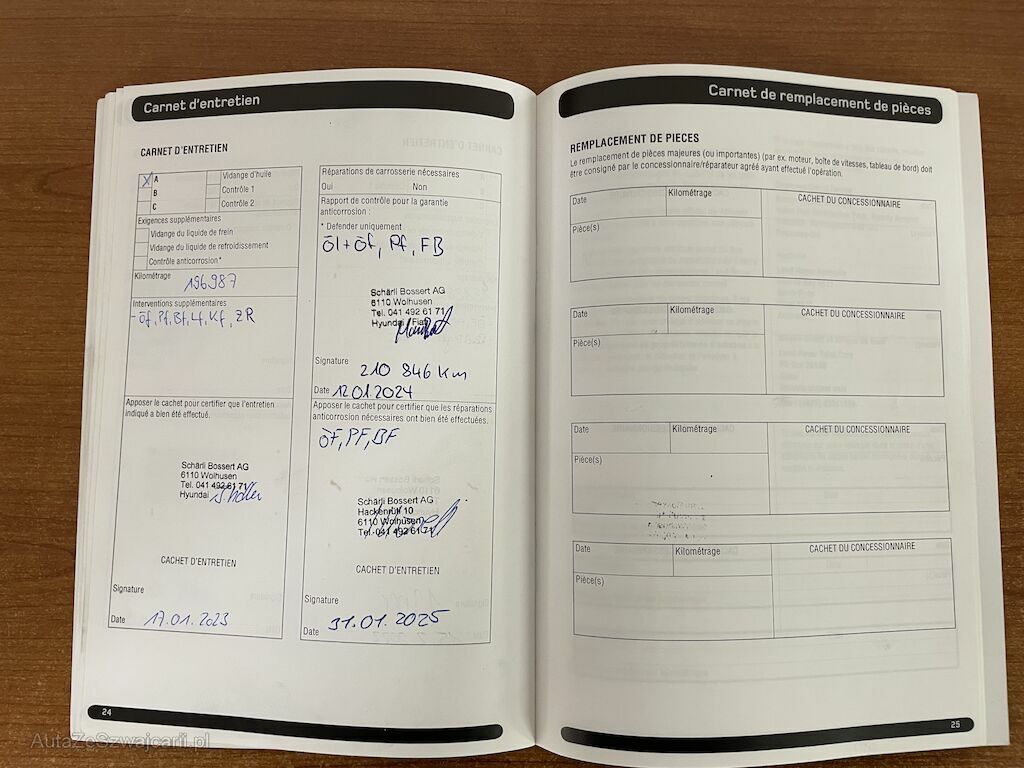 Carnet d'entretien
CARNET D'ENTRETIEN
X A
B
C
Vidange d'huile
Contrôle 1
Contrôle 2
Exigences supplémentaires
Vidange du liquide de frein
Vidange du liquide de refroidissement
Contrôle anticorrosion*
Kilométrage
196987
Interventions supplémentaires
- Öf, Pf, Bf, Lf, Kf, ZR
Apposer le cachet pour certifier que l'entretien
indiqué a bien été effectué.
Schärli Bossert AG
6110 Wolhusen
Tel. 041 492 61 71
Hyundai
CACHET D'ENTRETIEN
Signature
Date 17.01.2023
Réparations de carrosserie nécessaires
Oui Non
Rapport de contrôle pour la garantie
anticorrosion :
* Defender uniquement
Öl+Öf, Pf, FB
Schärli Bossert AG
6110 Wolhusen
Tel. 041 492 61 71
Hyundai / Fiat
Signature
210 846 Km
Date 12.01.2024
Apposer le cachet pour certifier que les réparations
anticorrosion nécessaires ont bien été effectuées.
ÖF, PF, BF
Schärli Bossert AG
Hackenrüti 10
6110 Wolhusen
Tel. 041 492 61 71
CACHET D'ENTRETIEN
Signature
Date 31.01.2025
24
Carnet de remplacement de pièces
REMPLACEMENT DE PIECES
Le remplacement de pièces majeures (ou importantes) (par ex. moteur, boîte de vitesses, tableau de bord) doit
être consigné par le concessionnaire/réparateur agréé ayant effectué l'opération.
Date Kilométrage CACHET DU CONCESSIONNAIRE
Pièce(s)
Date Kilométrage CACHET DU CONCESSIONNAIRE
Pièce(s)
Date Kilométrage CACHET DU CONCESSIONNAIRE
Pièce(s)
Date Kilométrage CACHET DU CONCESSIONNAIRE
Pièce(s)
25
AutaZeSzwajcarii.pl